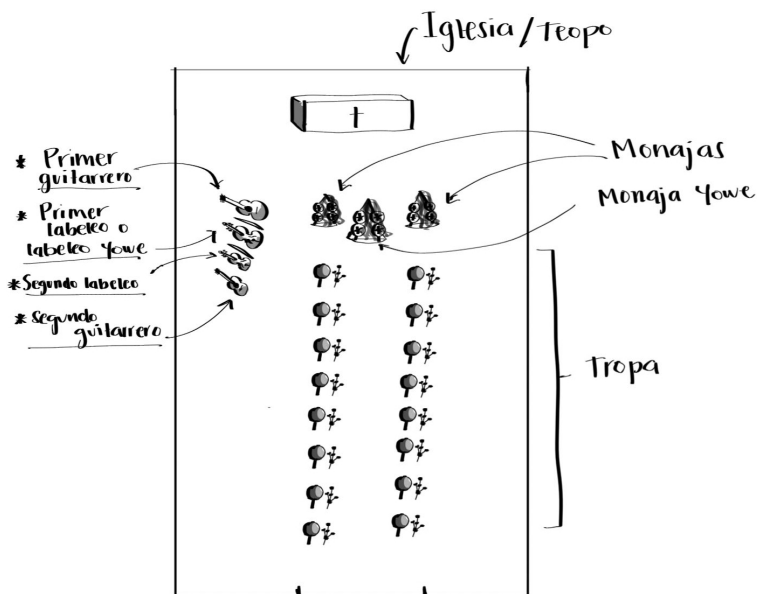 Iglesia / Teopo
* Primer
guitarrero
* Primer
labeleo o
labeleo Yowe
* Segundo labeleo
* segundo
guitarrero
Monajas
Monaja Yowe
Tropa